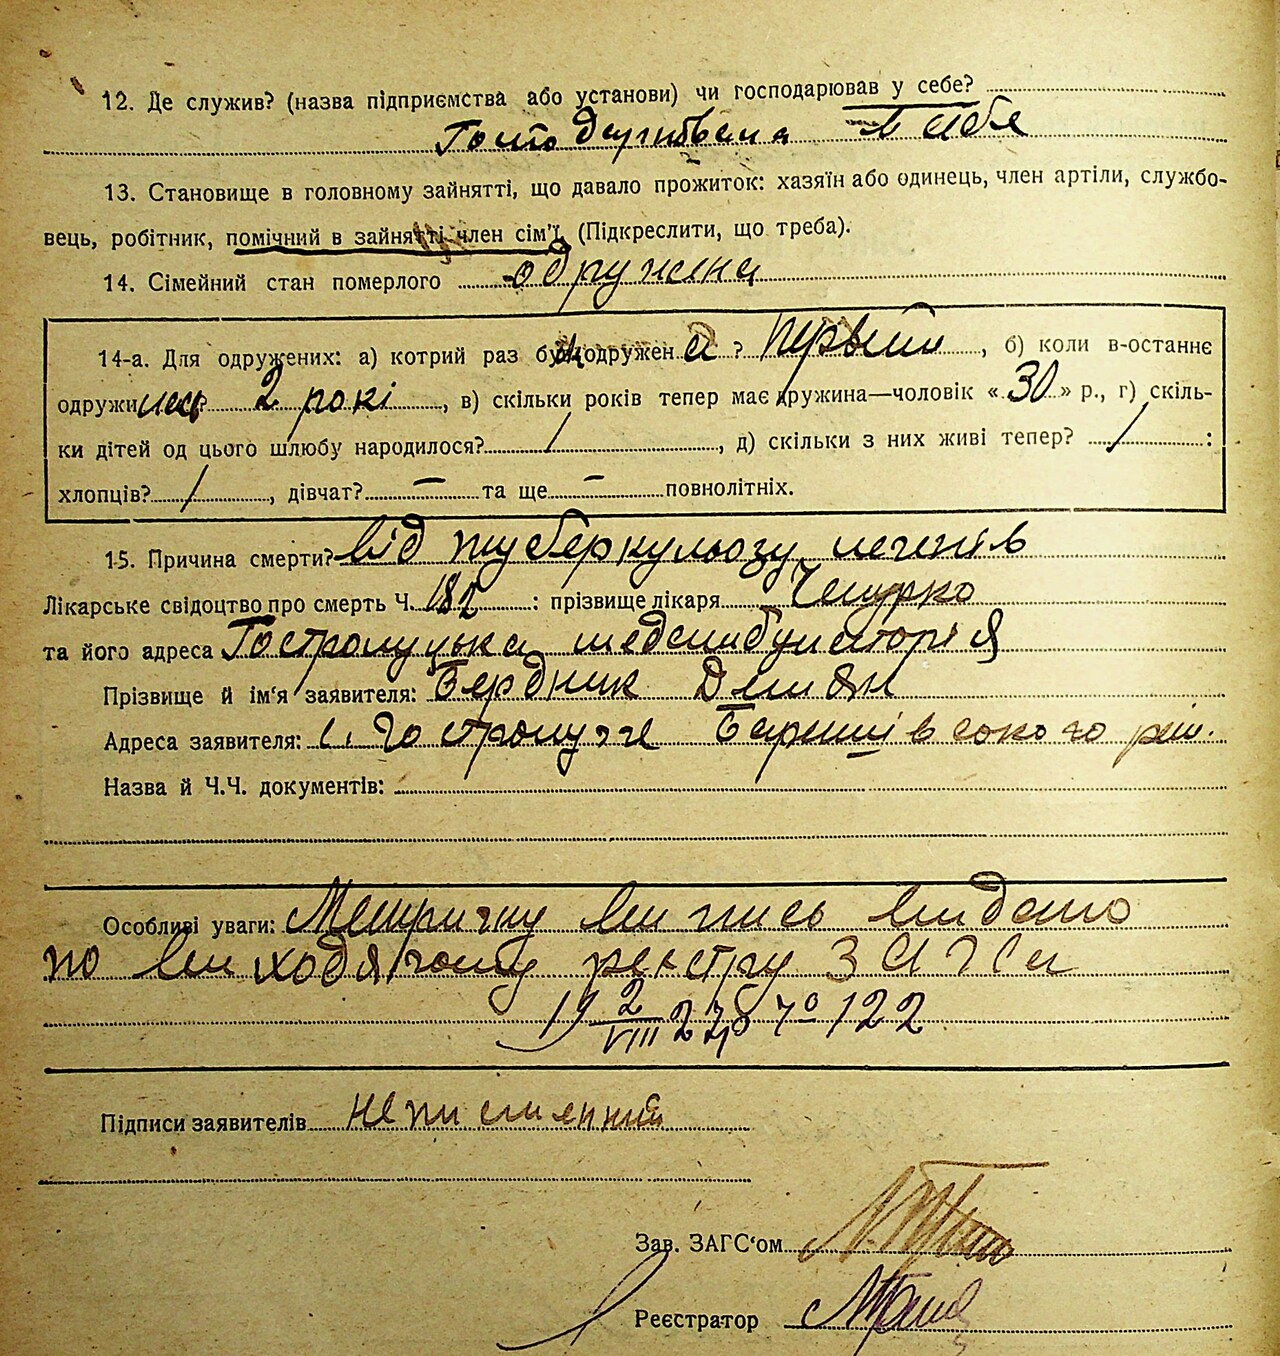 12. Де служив? (назва підприємства або установи) чи господарював у себе?
в себе
13. Становище в головному зайнятті, що давало прожиток: хазяїн або одинець, член артіли, службо-
вець, робітник, помічний в зайнятті член сім'ї. (Підкреслити, що треба).
14. Сімейний стан померлого одружена
14-а. Для одружених: а) котрий раз одружена? первий, б) коли в-останнє
одружилась? 2 рокі, в) скільки років тепер має дружина—чоловік «30» р., г) скіль-
ки дітей од цього шлюбу народилося? 1, д) скільки з них живі тепер? 1 :
хлопців? 1, дівчат? — та ще — повнолітніх.
15. Причина смерти? від туберкульозу легенів
Лікарське свідоцтво про смерть Ч. 182 : прізвище лікаря
та його адреса Гостролуцька медамбулаторія
Прізвище й ім'я заявителя: Бердник Демян
Адреса заявителя: с. Гостролуччє Баришівського рай.
Назва й Ч.Ч. документів:
Особливі уваги: Метричну випись видано
по виходячому реєстру ЗАГСа
19 2/VIII 27р № 122
Підписи заявителів неписьменний
Зав. ЗАГС'ом
Реєстратор